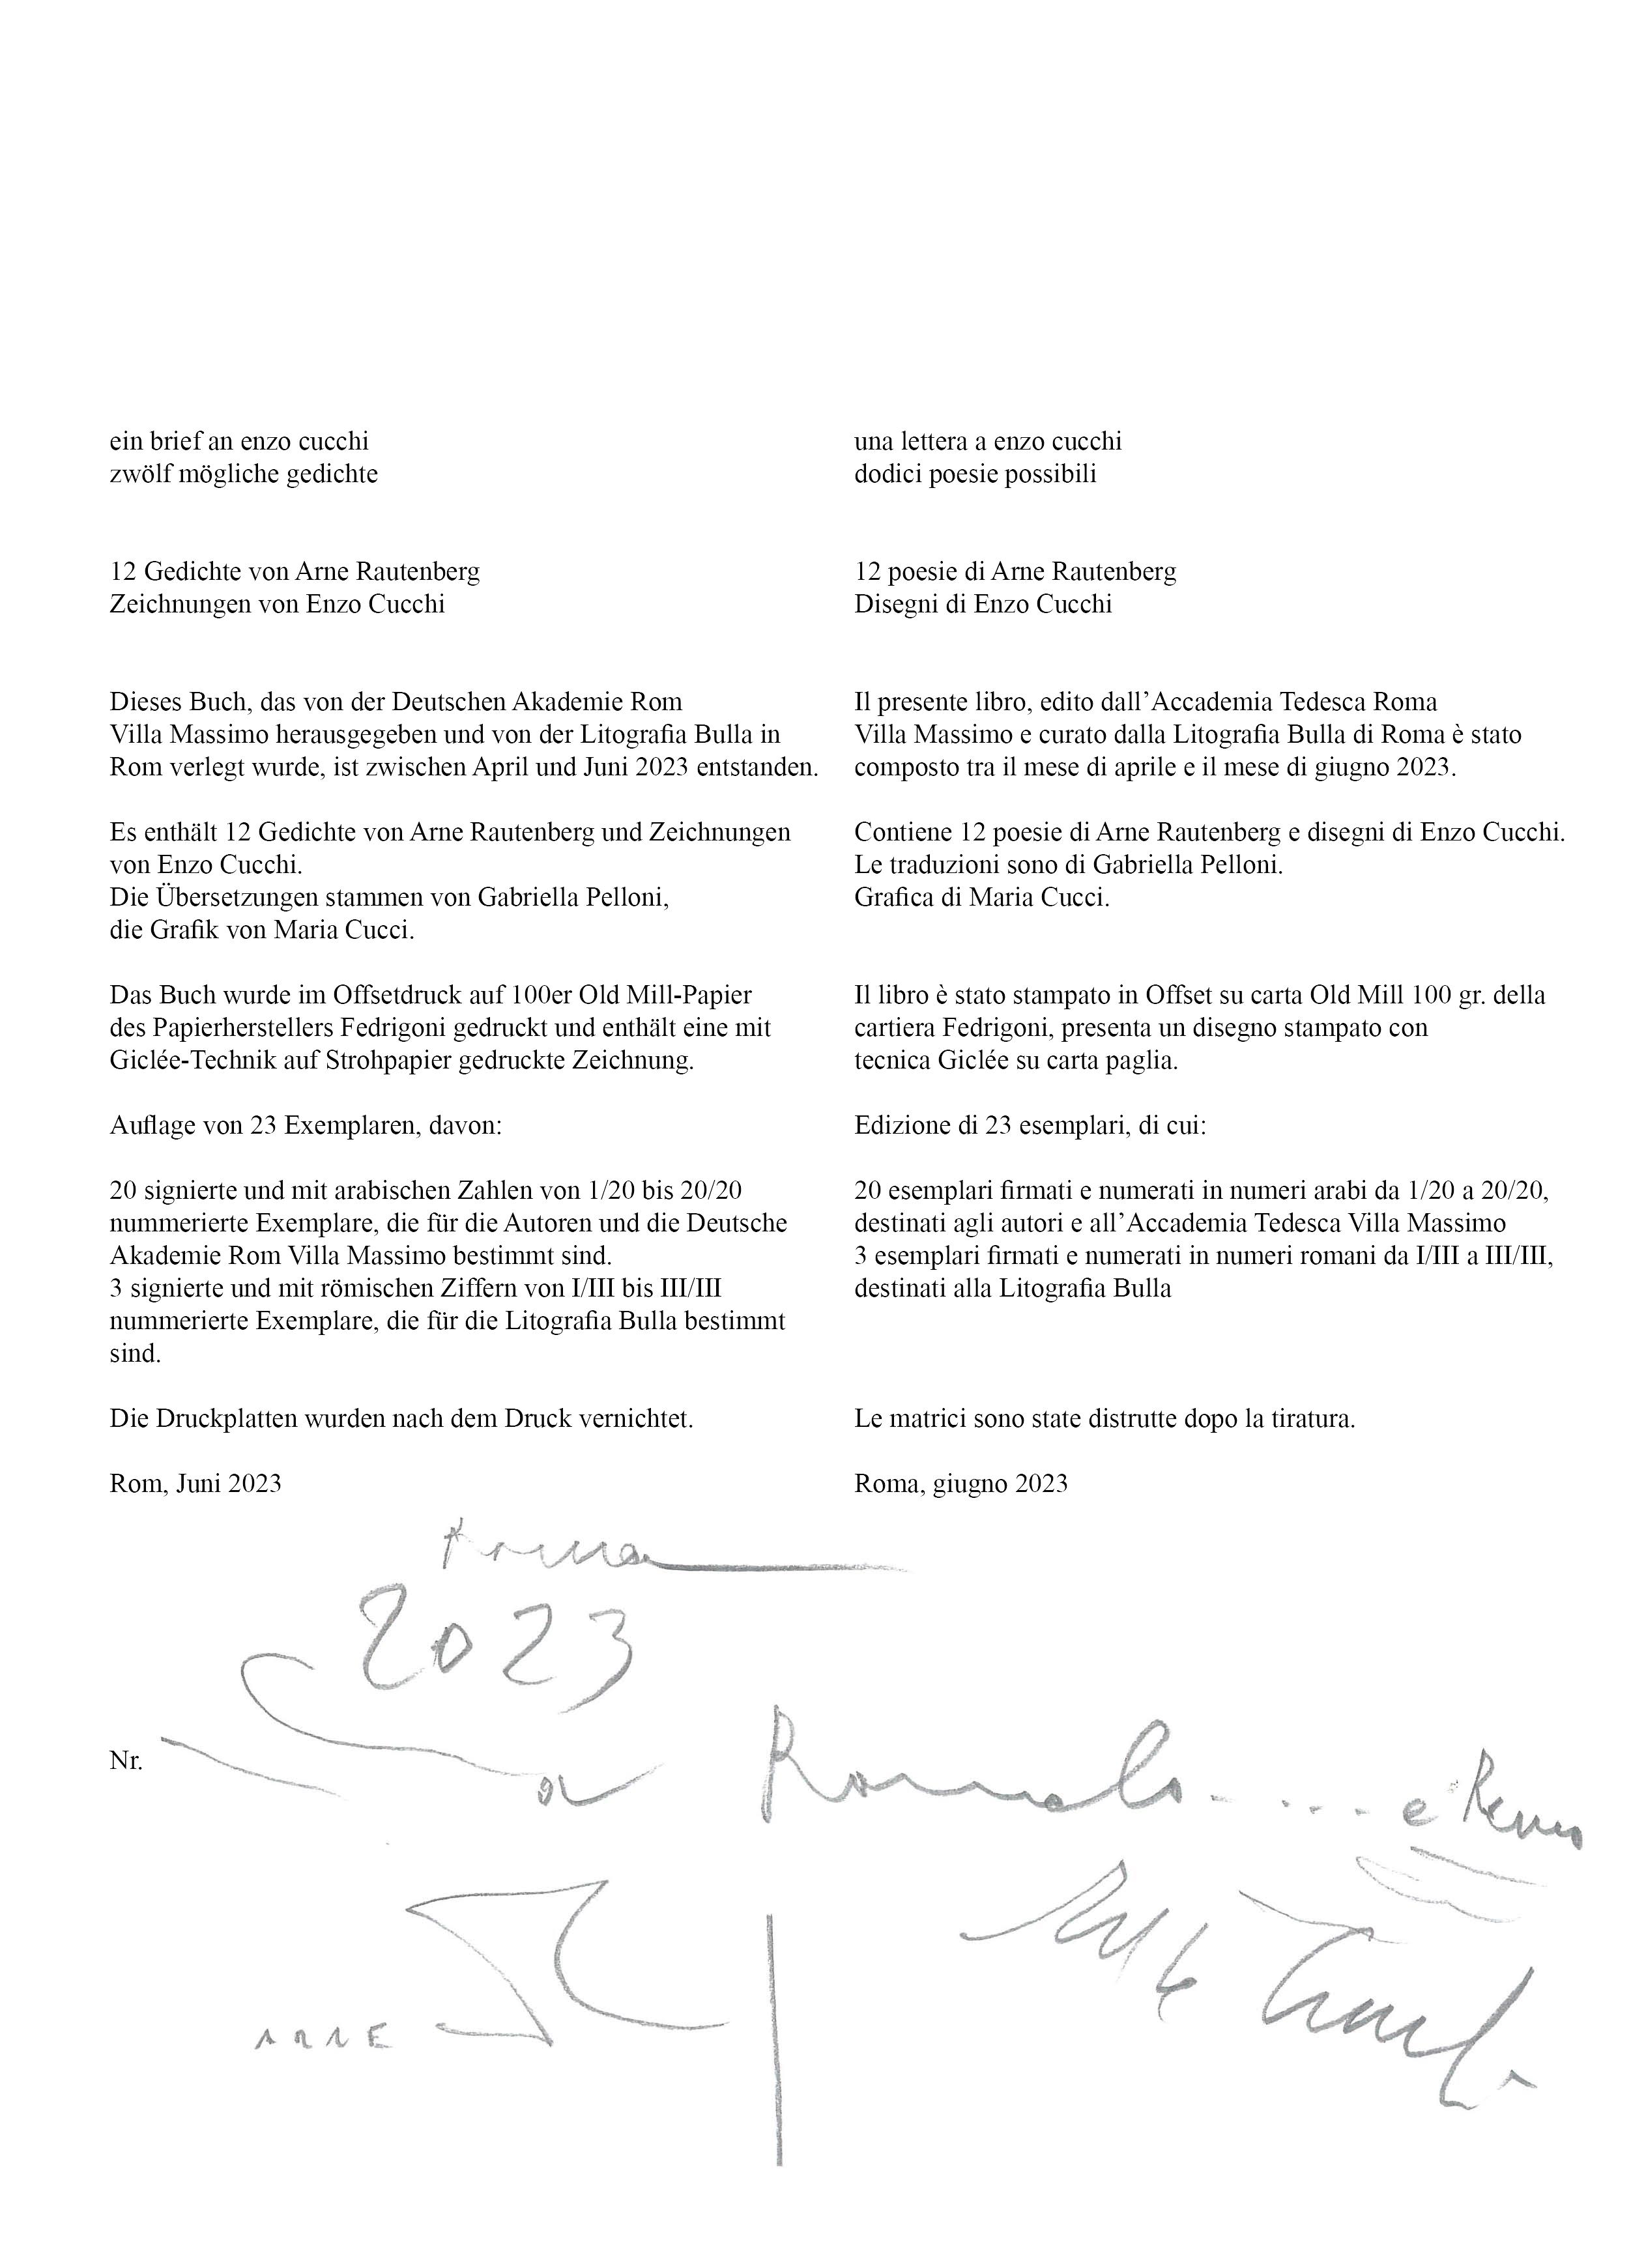 ein brief an enzo cucchi
zwölf mögliche gedichte
12 Gedichte von Arne Rautenberg
Zeichnungen von Enzo Cucchi
Dieses Buch, das von der Deutschen Akademie Rom
Villa Massimo herausgegeben und von der Litografia Bulla in
Rom verlegt wurde, ist zwischen April und Juni 2023 entstanden.
Es enthält 12 Gedichte von Arne Rautenberg und Zeichnungen
von Enzo Cucchi.
Die Übersetzungen stammen von Gabriella Pelloni,
die Grafik von Maria Cucci.
Das Buch wurde im Offsetdruck auf 100er Old Mill-Papier
des Papierherstellers Fedrigoni gedruckt und enthält eine mit
Giclée-Technik auf Strohpapier gedruckte Zeichnung.
Auflage von 23 Exemplaren, davon:
20 signierte und mit arabischen Zahlen von 1/20 bis 20/20
nummerierte Exemplare, die für die Autoren und die Deutsche
Akademie Rom Villa Massimo bestimmt sind.
3 signierte und mit römischen Ziffern von I/III bis III/III
nummerierte Exemplare, die für die Litografia Bulla bestimmt
sind.
Die Druckplatten wurden nach dem Druck vernichtet.
Rom, Juni 2023
una lettera a enzo cucchi
dodici poesie possibili
12 poesie di Arne Rautenberg
Disegni di Enzo Cucchi
Il presente libro, edito dall’Accademia Tedesca Roma
Villa Massimo e curato dalla Litografia Bulla di Roma è stato
composto tra il mese di aprile e il mese di giugno 2023.
Contiene 12 poesie di Arne Rautenberg e disegni di Enzo Cucchi.
Le traduzioni sono di Gabriella Pelloni.
Grafica di Maria Cucci.
Il libro è stato stampato in Offset su carta Old Mill 100 gr. della
cartiera Fedrigoni, presenta un disegno stampato con
tecnica Giclée su carta paglia.
Edizione di 23 esemplari, di cui:
20 esemplari firmati e numerati in numeri arabi da 1/20 a 20/20,
destinati agli autori e all’Accademia Tedesca Villa Massimo
3 esemplari firmati e numerati in numeri romani da I/III a III/III,
destinati alla Litografia Bulla
Le matrici sono state distrutte dopo la tiratura.
Roma, giugno 2023
Roma
2023
Nr.
a Romolo..... e Remo
ARNE